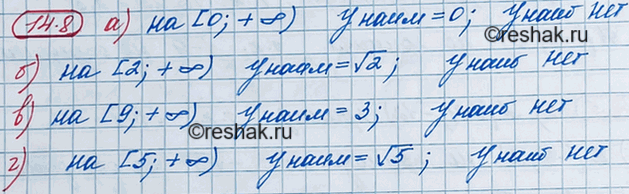 14.8 а) на [0; +∞) y наим = 0; y наиб нет
©reshak.ru
б) на [2; +∞) y наим = √2; y наиб нет
в) на [9; +∞) y наим = 3; y наиб нет
©reshak.ru
г) на [5; +∞) y наим = √5; y наиб нет